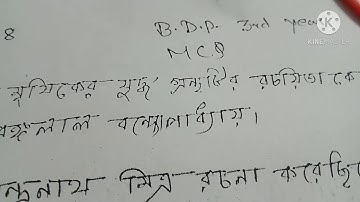 8
B.D.P. 3rd year
KINEMASTER
MCQ
মুষিকের যুদ্ধ গ্রন্থটির রচয়িতা কে
রঙ্গলাল বন্দ্যোপাধ্যায়।
নাথ মিত্র রচনা করেছি